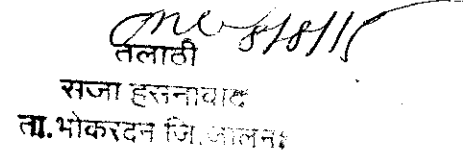 8/8/15
तलाठी
सजा हसनाबाद
ता.भोकरदन जि.जालना